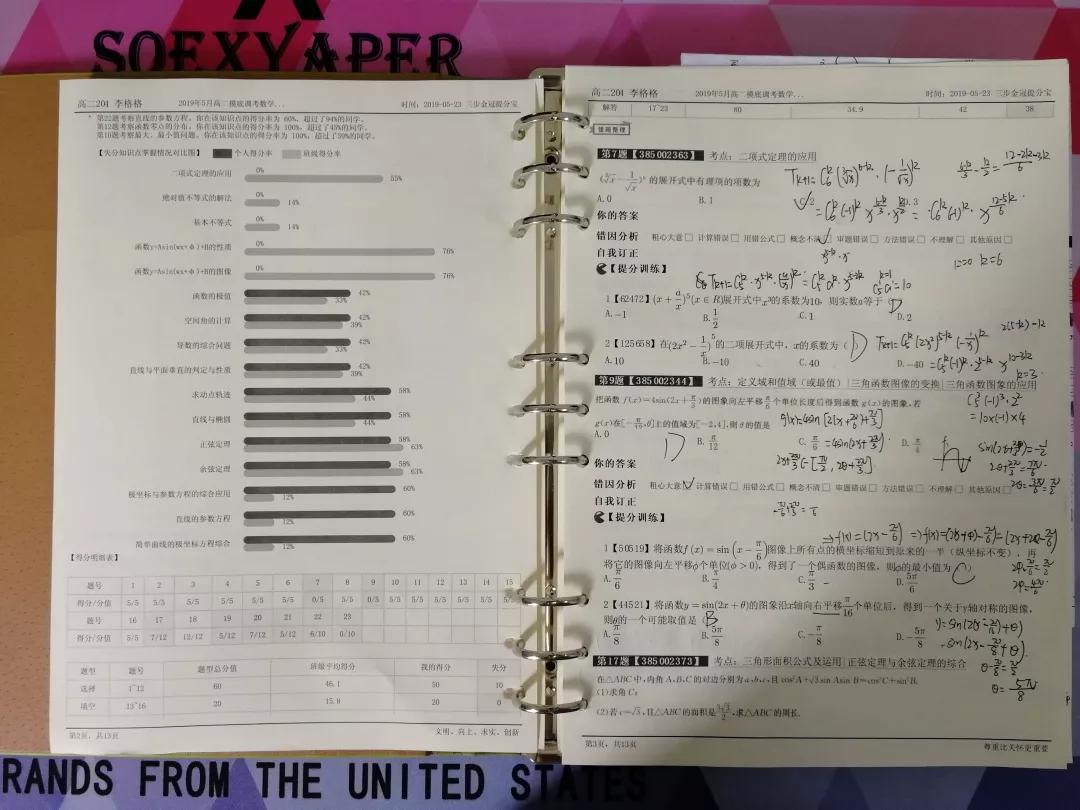 SOEXYAPER
高二204 李格格 2019年5月高二模底调考数学... 时间：2019-05-23 三步金冠提分宝
第22题考察直线的参数方程，你在该知识点的得分率为 60%，超过了94%的同学。
第12题考察函数零点的分布，你在该知识点的得分率为 100%，超过了45%的同学。
第10题考察最大、最小值问题，你在该知识点的得分率为 100%，超过了59%的同学。
【失分知识点掌握情况对比图】 个人得分率 班级得分率
二项式定理的应用 0% 55%
绝对值不等式的解法 0% 14%
基本不等式 0% 14%
函数y=Asin(wx+φ)+B的性质 0% 76%
函数y=Asin(wx+φ)+B的图像 0% 76%
函数的极值 42% 33%
空间角的计算 42% 39%
导数的综合问题 42% 33%
直线与平面垂直的判定与性质 42% 39%
求动点轨迹 58% 44%
直线与椭圆 58% 44%
正弦定理 58% 63%
余弦定理 58% 63%
极坐标与参数方程的综合应用 60% 12%
直线的参数方程 60% 12%
简单曲线的极坐标方程综合 60% 12%
【得分明细表】
题号 1 2 3 4 5 6 7 8 9 10 11 12 13 14 15
得分/分值 5/5 5/5 5/5 5/5 5/5 5/5 0/5 5/5 0/5 5/5 5/5 5/5 5/5 5/5
题号 16 17 18 19 20 21 22 23
得分/分值 5/5 7/12 12/12 5/12 7/12 5/12 6/10 0/10
题型 题号 题型总分值 班级平均得分 我的得分 失分
选择 1~12 60 46.1 50 10
填空 13~16 20 15.8 20 0
第2页，共13页 文明、向上、求实、创新
高二204 李格格 2019年5月高二模底调考数学... 时间：2019-05-23 三步金冠提分宝
解答 17~23 80 34.9 42 38
错题整理
第7题【385002363】 考点：二项式定理的应用
的展开式中有理项的项数为
A.0 B.1
你的答案
错因分析 粗心大意□ 计算错误□ 用错公式□ 概念不清□ 审题错误□ 方法错误□ 不理解□ 其他原因□
自我订正
k=0 k=6
【提分训练】
1【62472】(x+a/x)⁵(x∈R)展开式中x³的系数为10，则实数a等于（ D
A.-1 B.1/2 C.1 D.2
2【125658】在(2x²-1/x)⁵的二项展开式中，x的系数为（ D ）
A.10 B.-10 C.40 D.-40
k=3
=10×(-1)×4
第9题【385002344】 考点：定义域和值域（或最值）|三角函数图像的变换|三角函数图象的应用
把函数 f(x)=4sin(2x+π/3)的图象向左平移π/6个单位长度后得到函数 g(x)的图象，若
g(x)在[-π/12,θ]上的值域为[-2,4]，则θ的值是
A.0 B.π/12 C.π/6 D.π/4
你的答案 D
错因分析 粗心大意☑ 计算错误□ 用错公式□ 概念不清□ 审题错误□ 方法错误□ 不理解□ 其他原因□
自我订正
【提分训练】
1【50519】将函数f(x)=sin(x-π/6)图像上所有点的横坐标缩短到原来的一半（纵坐标不变），再
将它的图像向左平移φ个单位(φ>0)，得到了一个偶函数的图像，则φ的最小值为（ C ）
A.π/6 B.π/4 C.π/3 D.5π/6
2【44521】将函数y=sin(2x+θ)的图象沿x轴向右平移π/16个单位后，得到一个关于y轴对称的图像，
则θ的一个可能取值是（ B
A.π/8 B.5π/8 C.-π/8 D.-5π/8
θ-π/8=π/2
θ=5π/8
第17题【385002373】 考点：三角形面积公式及运用|正弦定理与余弦定理的综合
在△ABC中，内角A、B、C的对边分别为a,b,c，且 cos²A+√3sin Asin B=cos²C+sin²B.
(1)求角 C；
(2)若 c=√3，且△ABC的面积是3√3/2，求△ABC的周长.
第3页，共13页 尊重比关怀更重要
RANDS FROM THE UNITED STATES